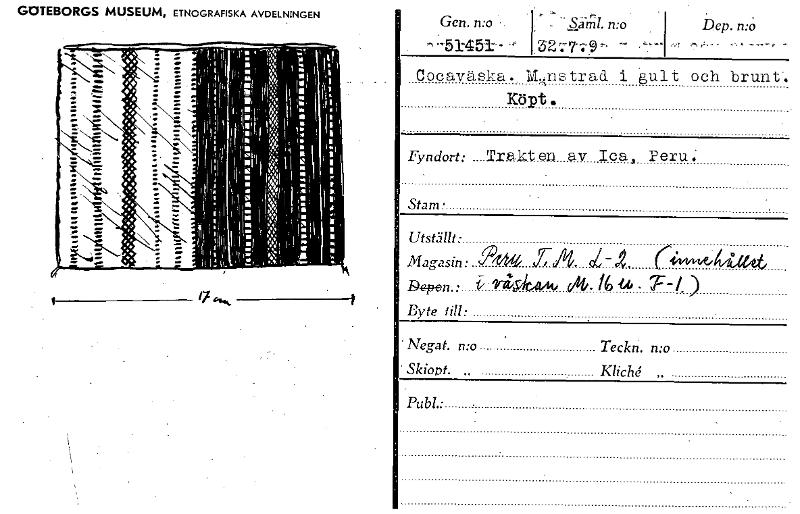 GÖTEBORGS MUSEUM, ETNOGRAFISKA AVDELNINGEN
17 cm
Gen. n:o Saml. n:o Dep. n:o
51451 32.7.9
Cocaväska. Mönstrad i gult och brunt.
Köpt.
Fyndort: Trakten av Ica, Peru.
Stam:
Utställt:
Magasin: Peru T.M. L-2 (innehållet
Depon.: i väskan M.16 u. F-1)
Byte till:
Negat. n:o Teckn. n:o
Skiopt. „ Kliché „
Publ.: